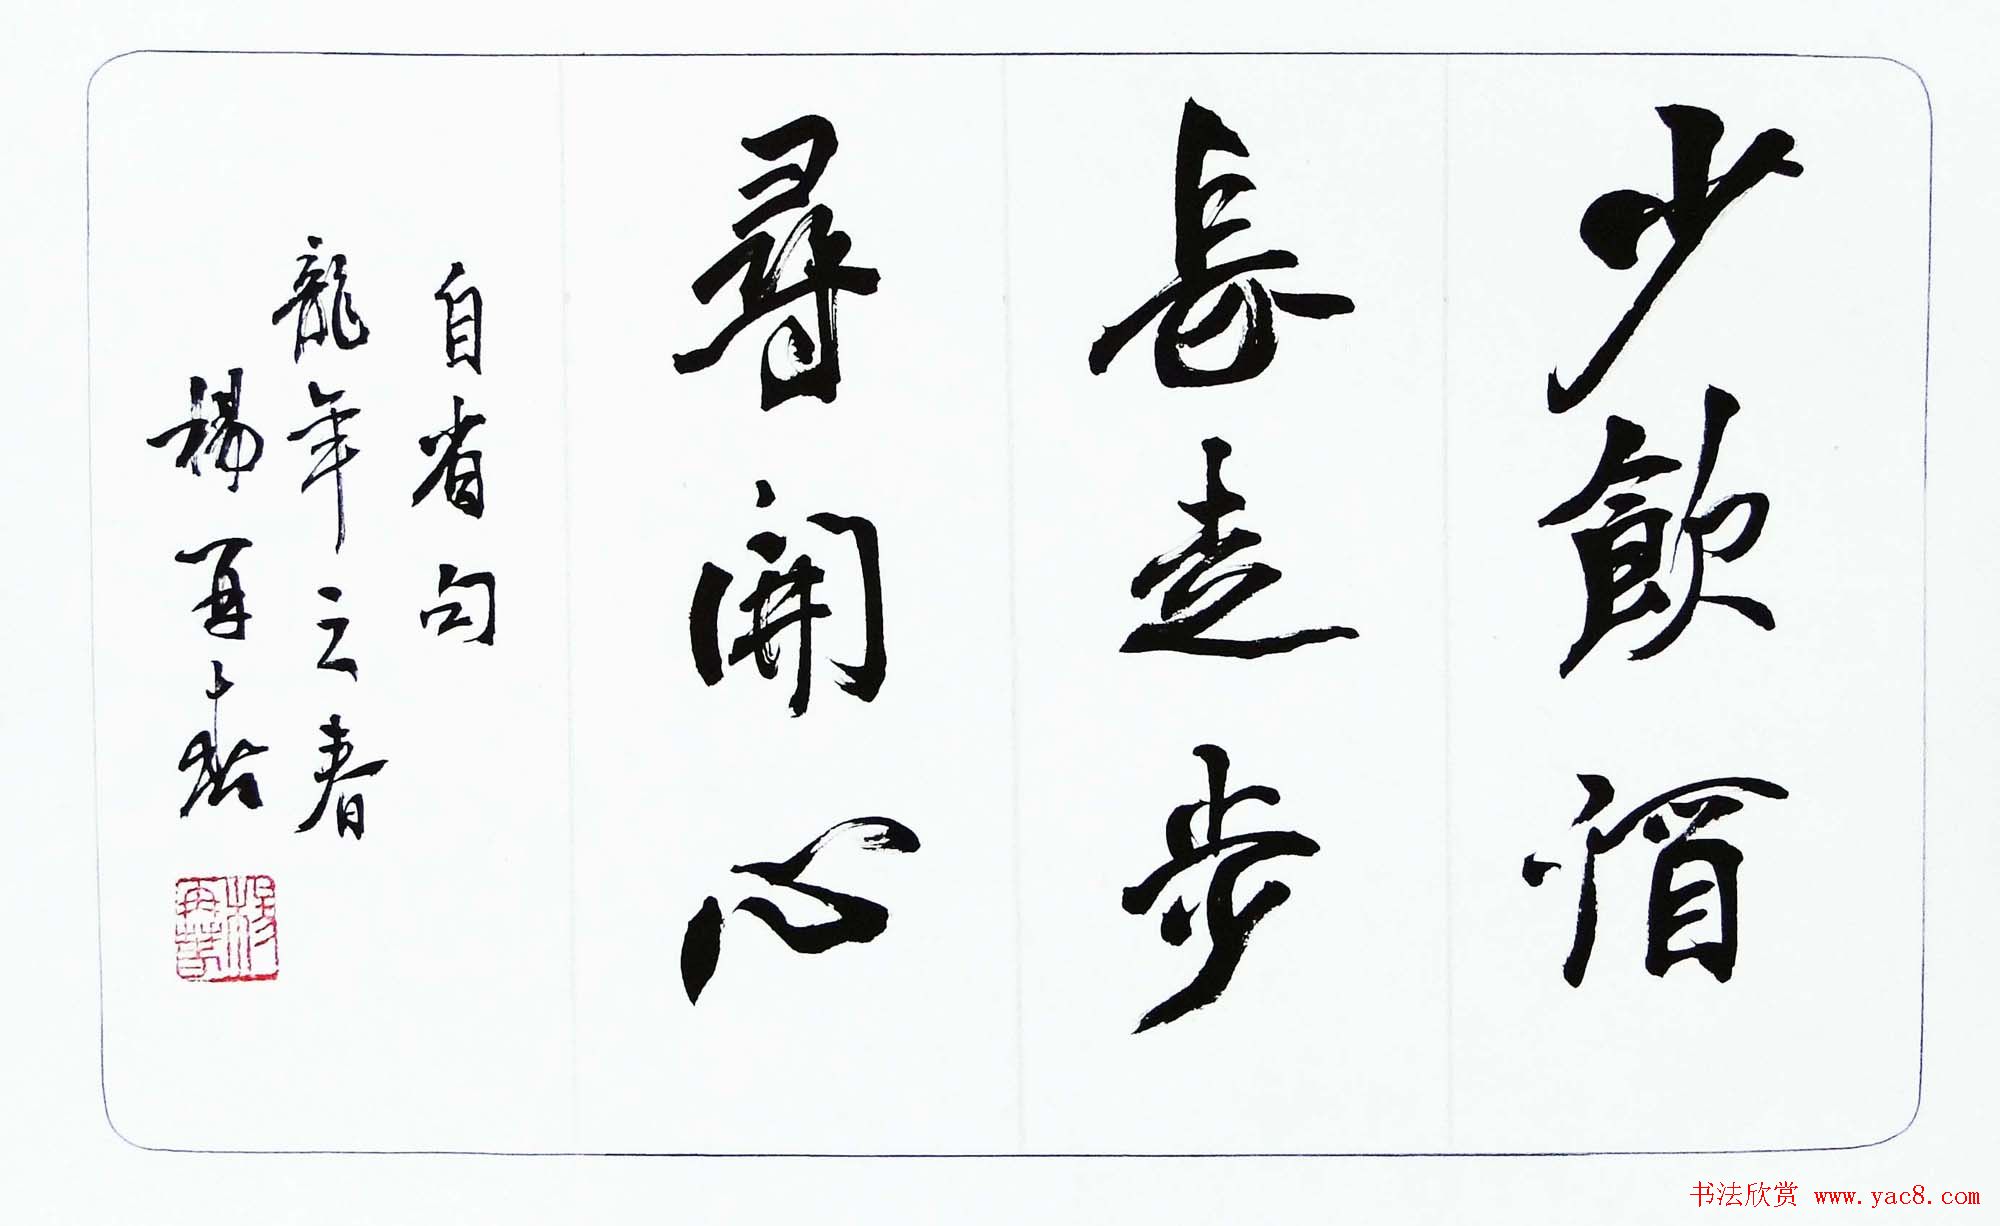 少飲酒
長走步
尋開心
自省句
龍年之春
楊再春
楊再春
书法欣赏 www.yac8.com